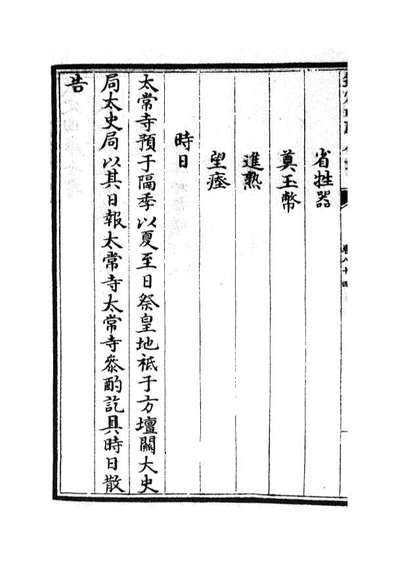 省牲器
奠玉幣
進熟
望瘞
時日
太常寺預于隔季以夏至日祭皇地祗于方壇關大史
局太史局以其日報太常寺太常寺叅酌訖具時日散
告